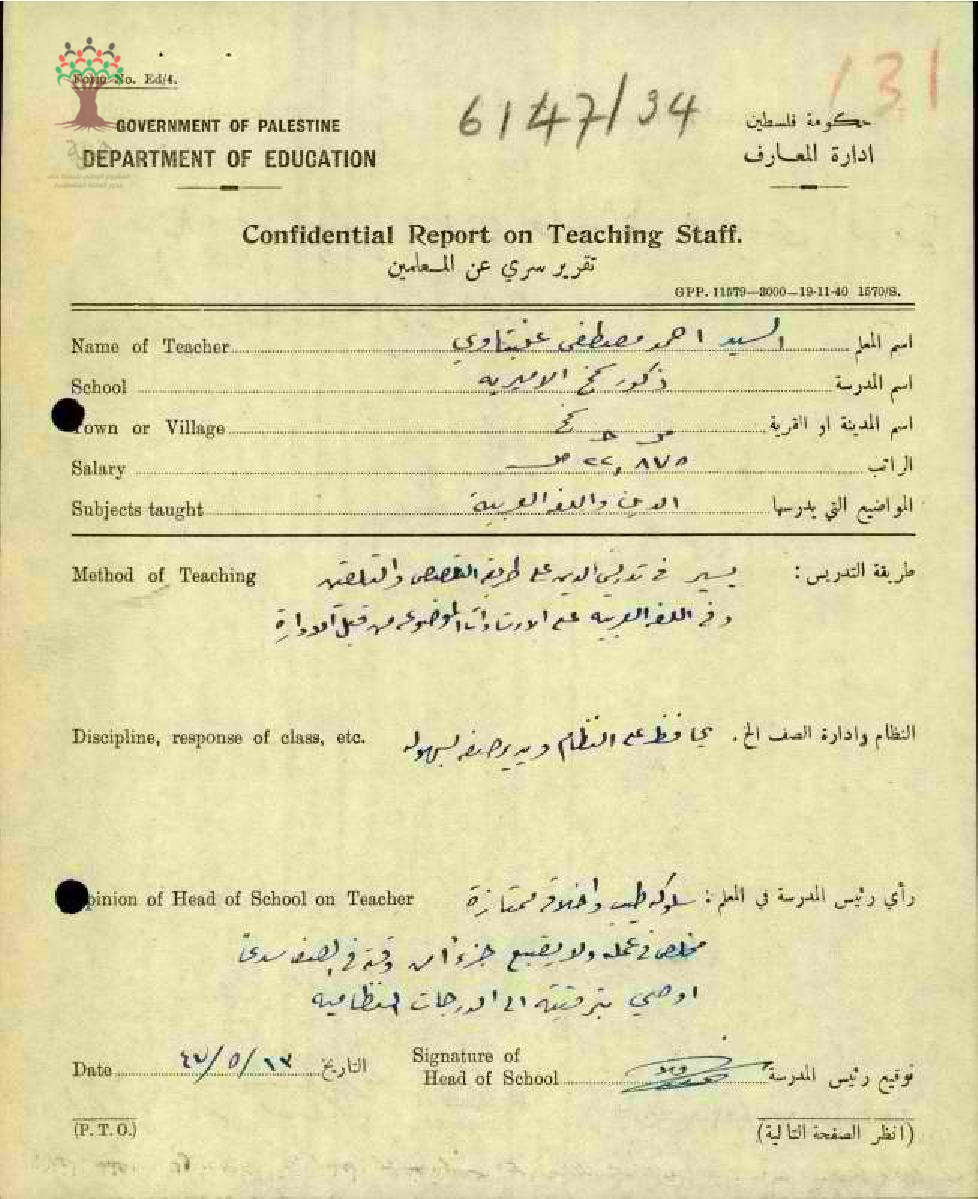 131
6147/34
Form No. Ed/4.
GOVERNMENT OF PALESTINE
حكومة فلسطين
DEPARTMENT OF EDUCATION
ادارة المعارف
Confidential Report on Teaching Staff.
تقرير سري عن المعلمين
GPP. 11579—3000—19-11-40 1570/S.
Name of Teacher السيد احمد مصطفى عفيتاوي اسم المعلم
School ذكور الاميرية اسم المدرسة
Town or Village اسم المدينة او القرية
Salary ٢٢,٨٧٥ الراتب
Subjects taught الدين واللغة العربية المواضيع التي يدرسها
Method of Teaching طريقة التدريس : يسير في تدريس الدين على طريقة القصص والتلقين
وفي اللغة العربية على الارشادات الموضوعه من قبل الادارة
Discipline, response of class, etc. النظام وادارة الصف الخ . يحافظ على النظام ويدير صفه بسهوله
Opinion of Head of School on Teacher رأي رئيس المدرسة في المعلم : سلوكه طيب واخلاقه ممتازة
مخلص في عمله ولا يضيع جزءاً من وقته في الصف سدىً
اوصي بترقيته الى الدرجات النظاميه
Date ١٣/٥/٤٧ التاريخ
Signature of
Head of School توقيع رئيس المدرسة
(P. T. O.)
(انظر الصفحة التالية)